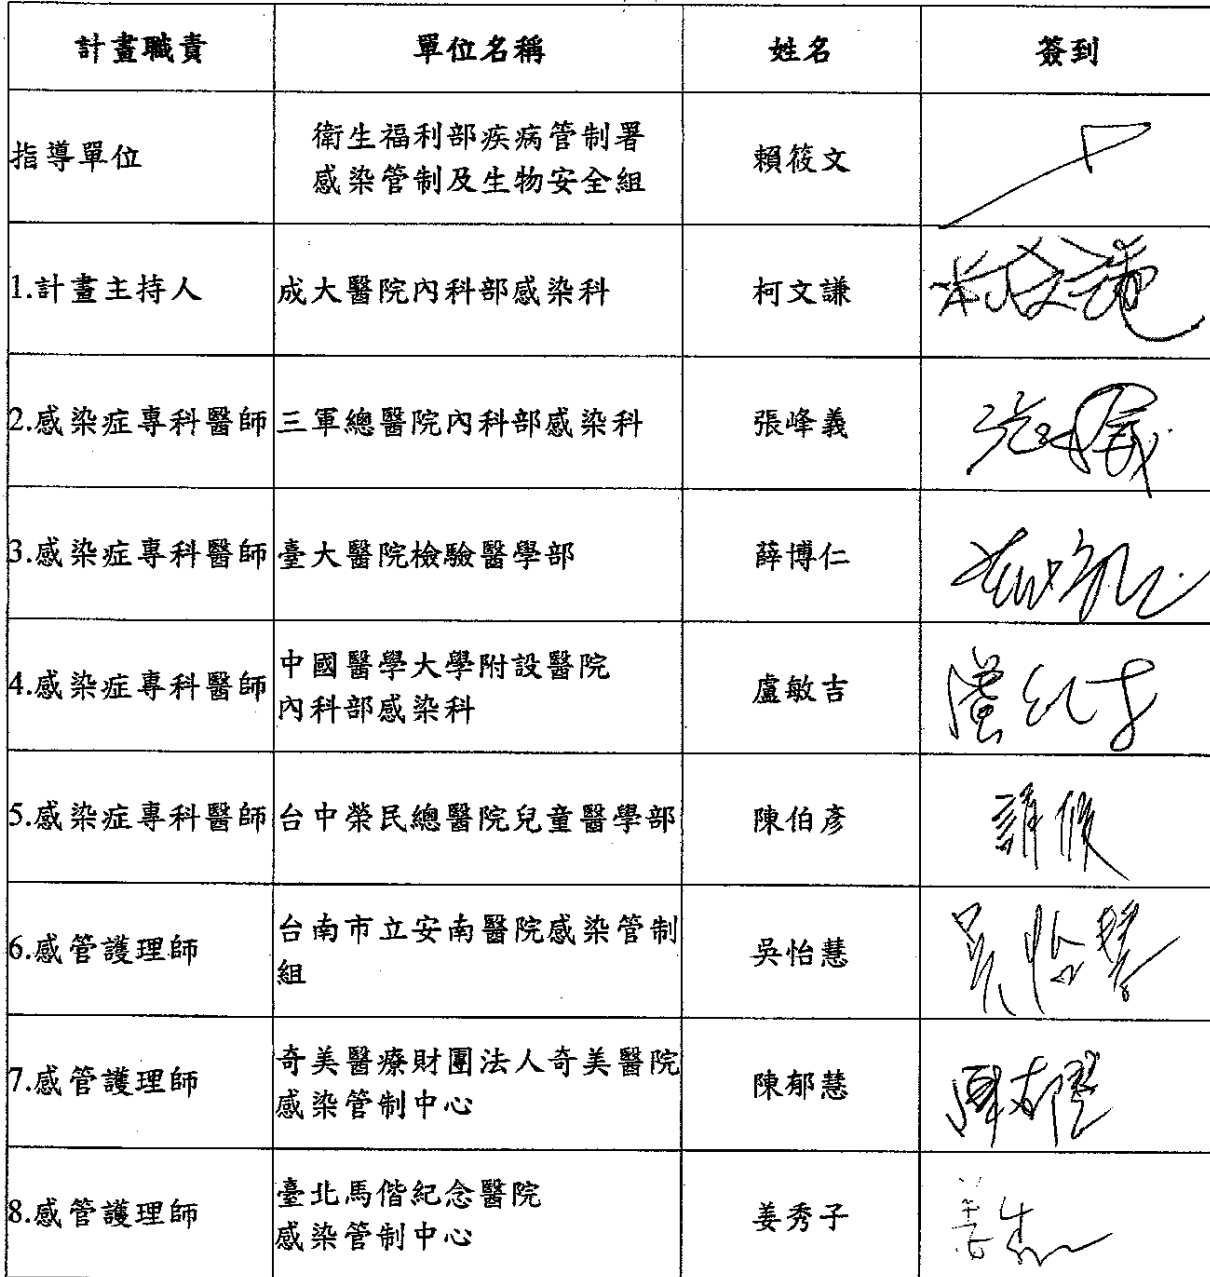 計畫職責 單位名稱 姓名 簽到
指導單位 衛生福利部疾病管制署 賴筱文
感染管制及生物安全組
1.計畫主持人 成大醫院內科部感染科 柯文謙 柯文謙
2.感染症專科醫師 三軍總醫院內科部感染科 張峰義
3.感染症專科醫師 臺大醫院檢驗醫學部 薛博仁
4.感染症專科醫師 中國醫學大學附設醫院 盧敏吉
內科部感染科
5.感染症專科醫師 台中榮民總醫院兒童醫學部 陳伯彥 請假
6.感管護理師 台南市立安南醫院感染管制 吳怡慧 吳怡慧
組
7.感管護理師 奇美醫療財團法人奇美醫院 陳郁慧 陳郁慧
感染管制中心
8.感管護理師 臺北馬偕紀念醫院 姜秀子
感染管制中心